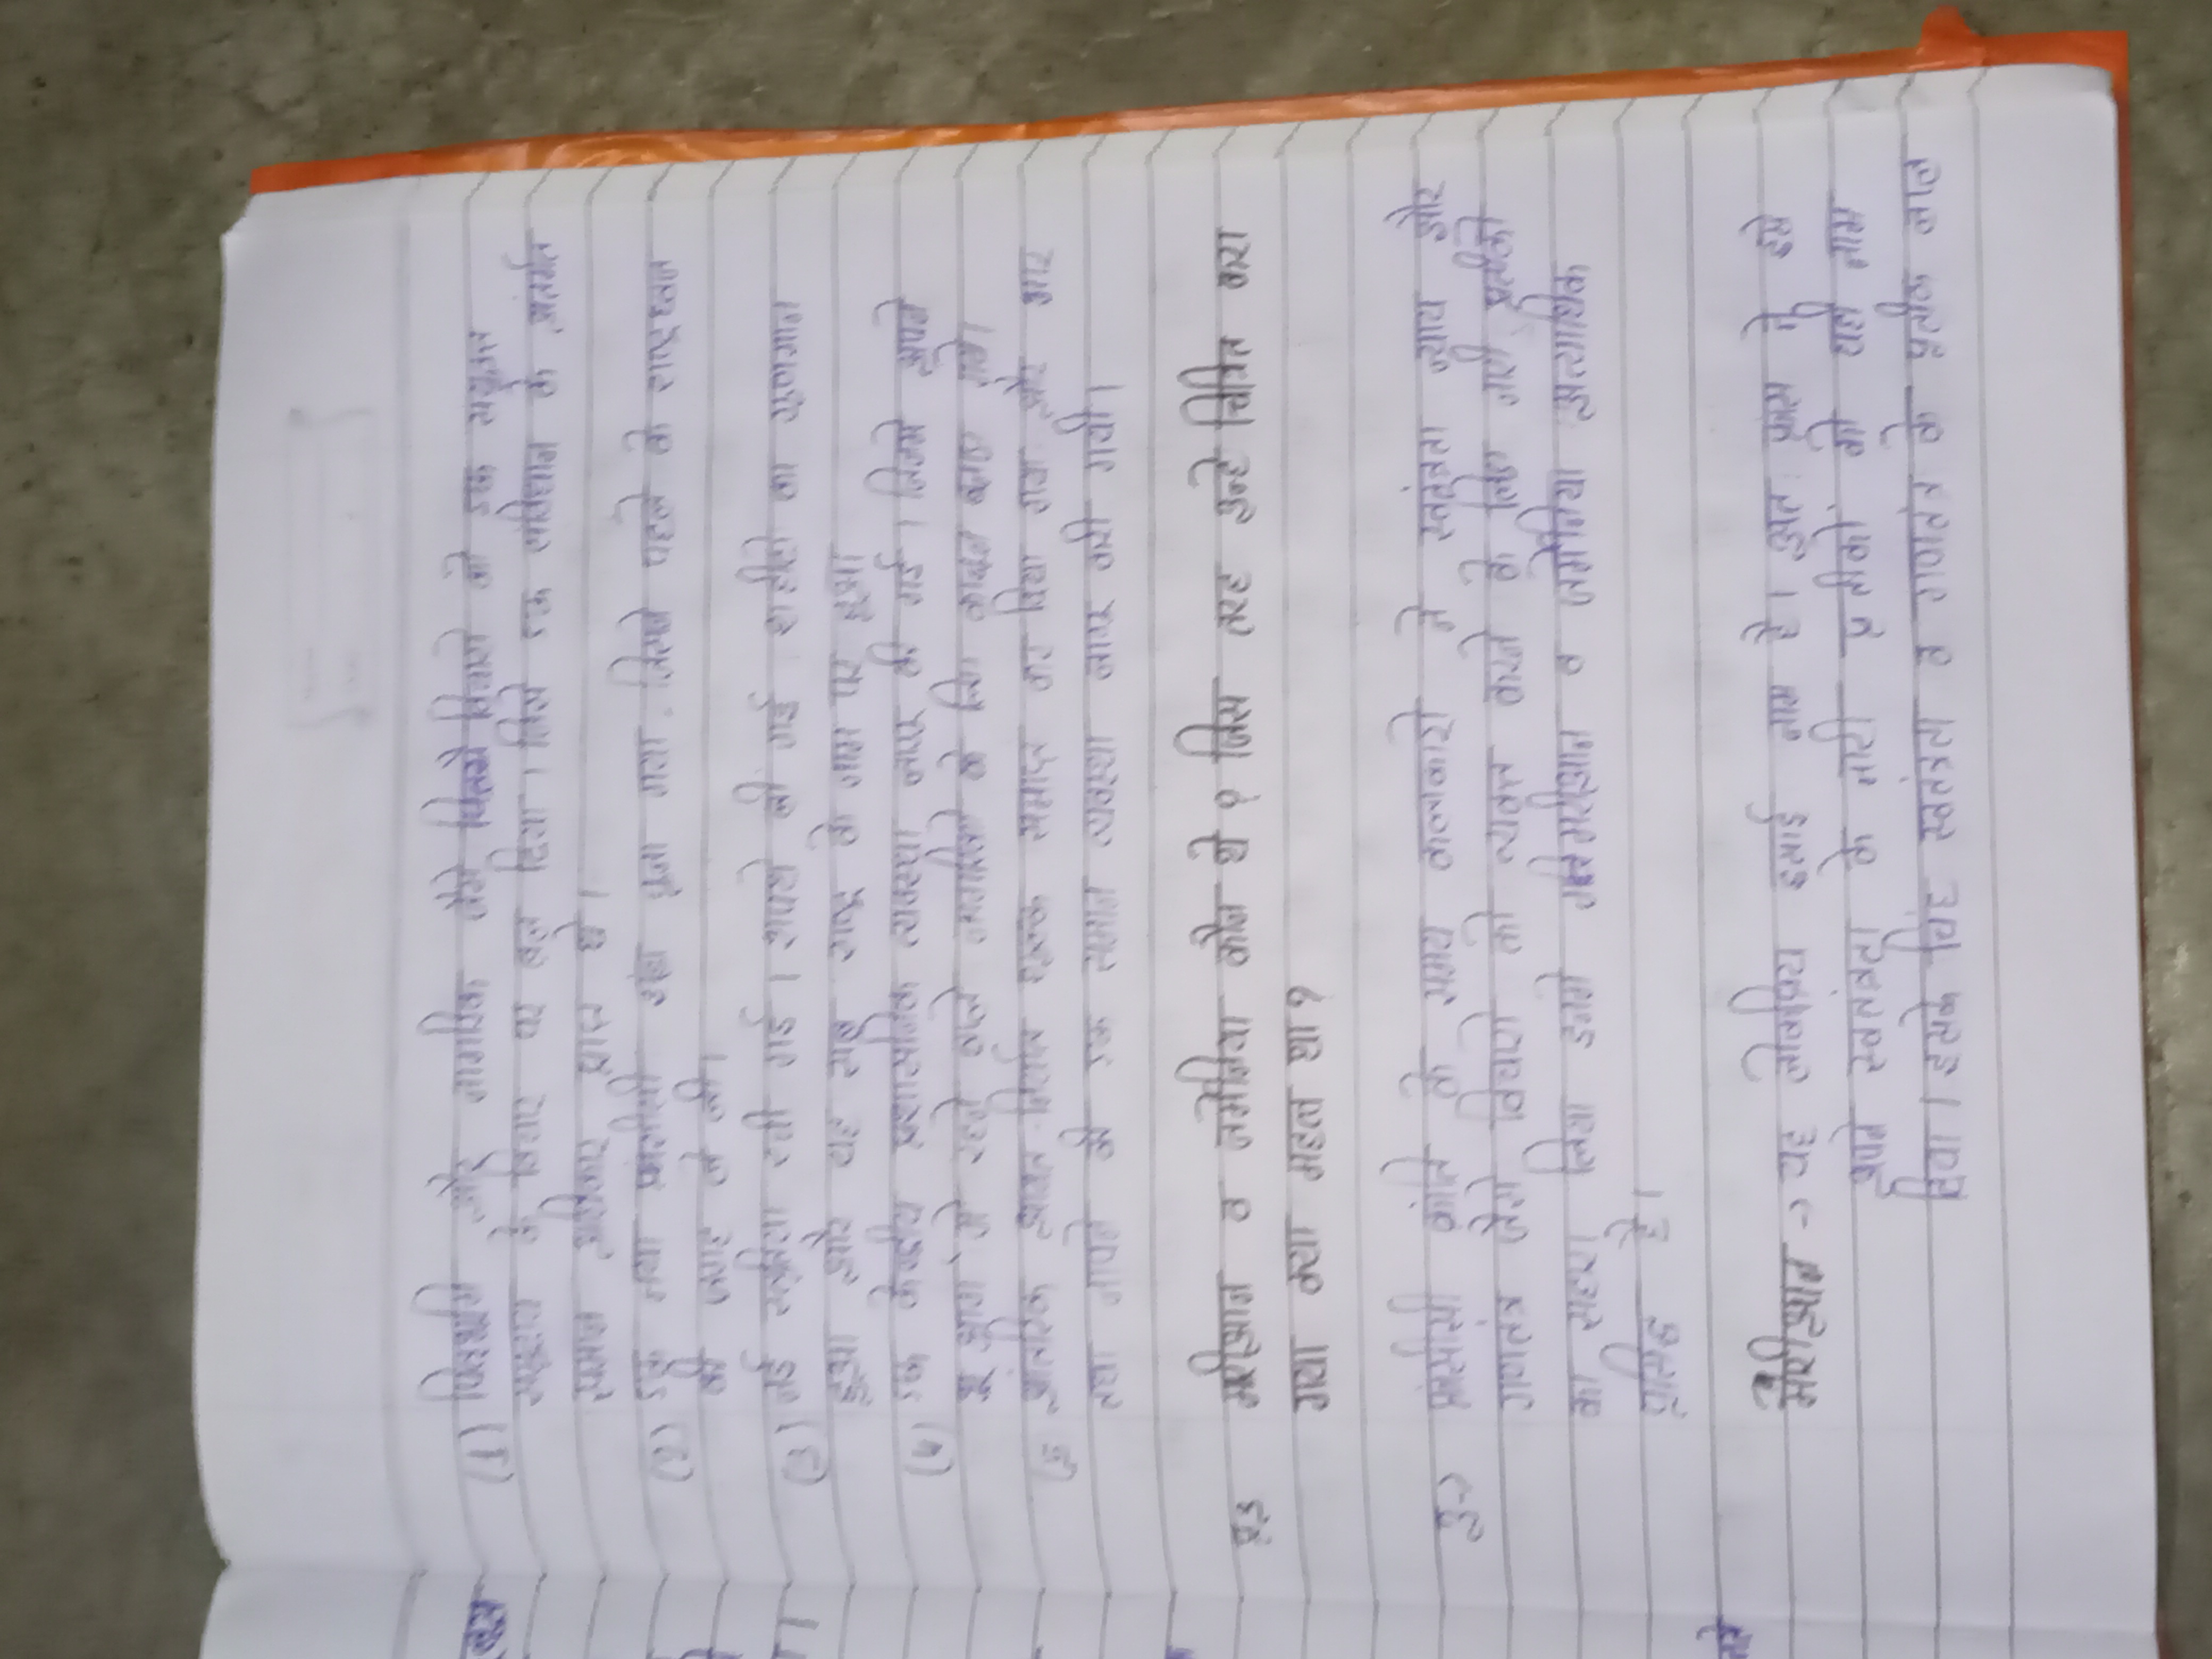 (1) पितृभूमि और नागरिक जैसे विचारो ने एक सयुक्त
समुदाय के विचार पर बल दिया । जिसे एक संविधान के अंतर्गत
समान अधिकार प्राप्त थे ।
(2) एक नया फ्रांसीसी झंडा चुना गया . जिसने पहले के राष्ट्रध्वज
की जगह ले ली ।
(3) नई स्तुतिया रची गई । शपथे ली गई शहीदो का गुणगान
हुआ और यह सब राष्ट्र के नाम पर हुआ
(4) एक केन्द्रीय प्रशासनिक व्यवस्था लागू की गई । जिसमे अपने
भू भाग में रहने वाले नागरिको के लिए कानून बनाए गये।
(5 आंतरिक आयात निर्यात शुल्क समाप्त कर दिया गया और भार
तथा नापने की एक समान व्यवस्था लागू करी गयी ।
प्र3 मरीआन व जर्मेनिया कौन थे ? जिस तरह इन्हे चित्रित करा
गया क्या महत्व था ?
उ→ फ्रांसीसी क्रांति के समय कलाकारो ने स्वतंत्रता न्याय और
गणतंत्र जैसे विचारो को व्यक्त करने के लिए नारी प्रतीको
का सहारा लिया इनमे मरीआन व जर्मेनिया अत्याधिक
प्रसिद्ध है ।
मेरीआन → यह लोकप्रिय इसाई नाम है । अत: फ्रांस ने इसे
अपने स्वतंत्रता के नारी प्रतीकों को यही नाम
दिया । इसके चिंह स्वतंत्रता व गणतंत्र के प्रतीक लाल